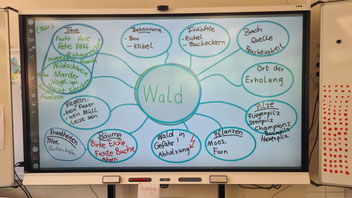 (Bau)
Tiere
Fuchs Hase
Rehe Wolf
Wildschwein
Marder
Behausung
- Bau
- Kobel
Früchte
- Eichel
- Bucheckern
Bach
Quelle
Feuchtigkeit
Ort der
Erholung
Wald
Regeln:
kein Feuer
kein Müll
leise sein
Krankheiten
Bäume
Birke Eiche
Fichte Buche
Ahorn
Wald in
Gefahr!
Abholzung
Pflanzen
Moos,
Farn
Pilze
Fliegenpilz
Steinpilz
Champions
Hexenpilz